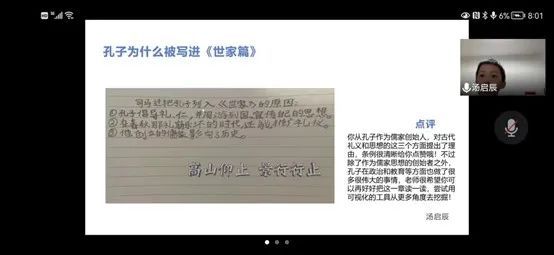 8:01
孔子为什么被写进《世家篇》
汤启辰
司马迁把孔子列入《世家》的原因:
①孔子倡导礼、仁,并周游列国,宣传自己的思想。
②在春秋那礼崩乐坏的时代,还
③他创立的儒家影响了历史。
高山仰止 景行行止
点评
你从孔子作为儒家创始人,对古代
礼义和思想的这三个方面提出了理
由,条例很清晰给你点赞哦!不过
除了作为儒家思想的创始者之外,
孔子在政治和教育等方面也做了很
多很伟大的事情,老师很希望你可
以再好好把这一章读一读,尝试用
可视化的工具从更多角度去挖掘!
汤启辰